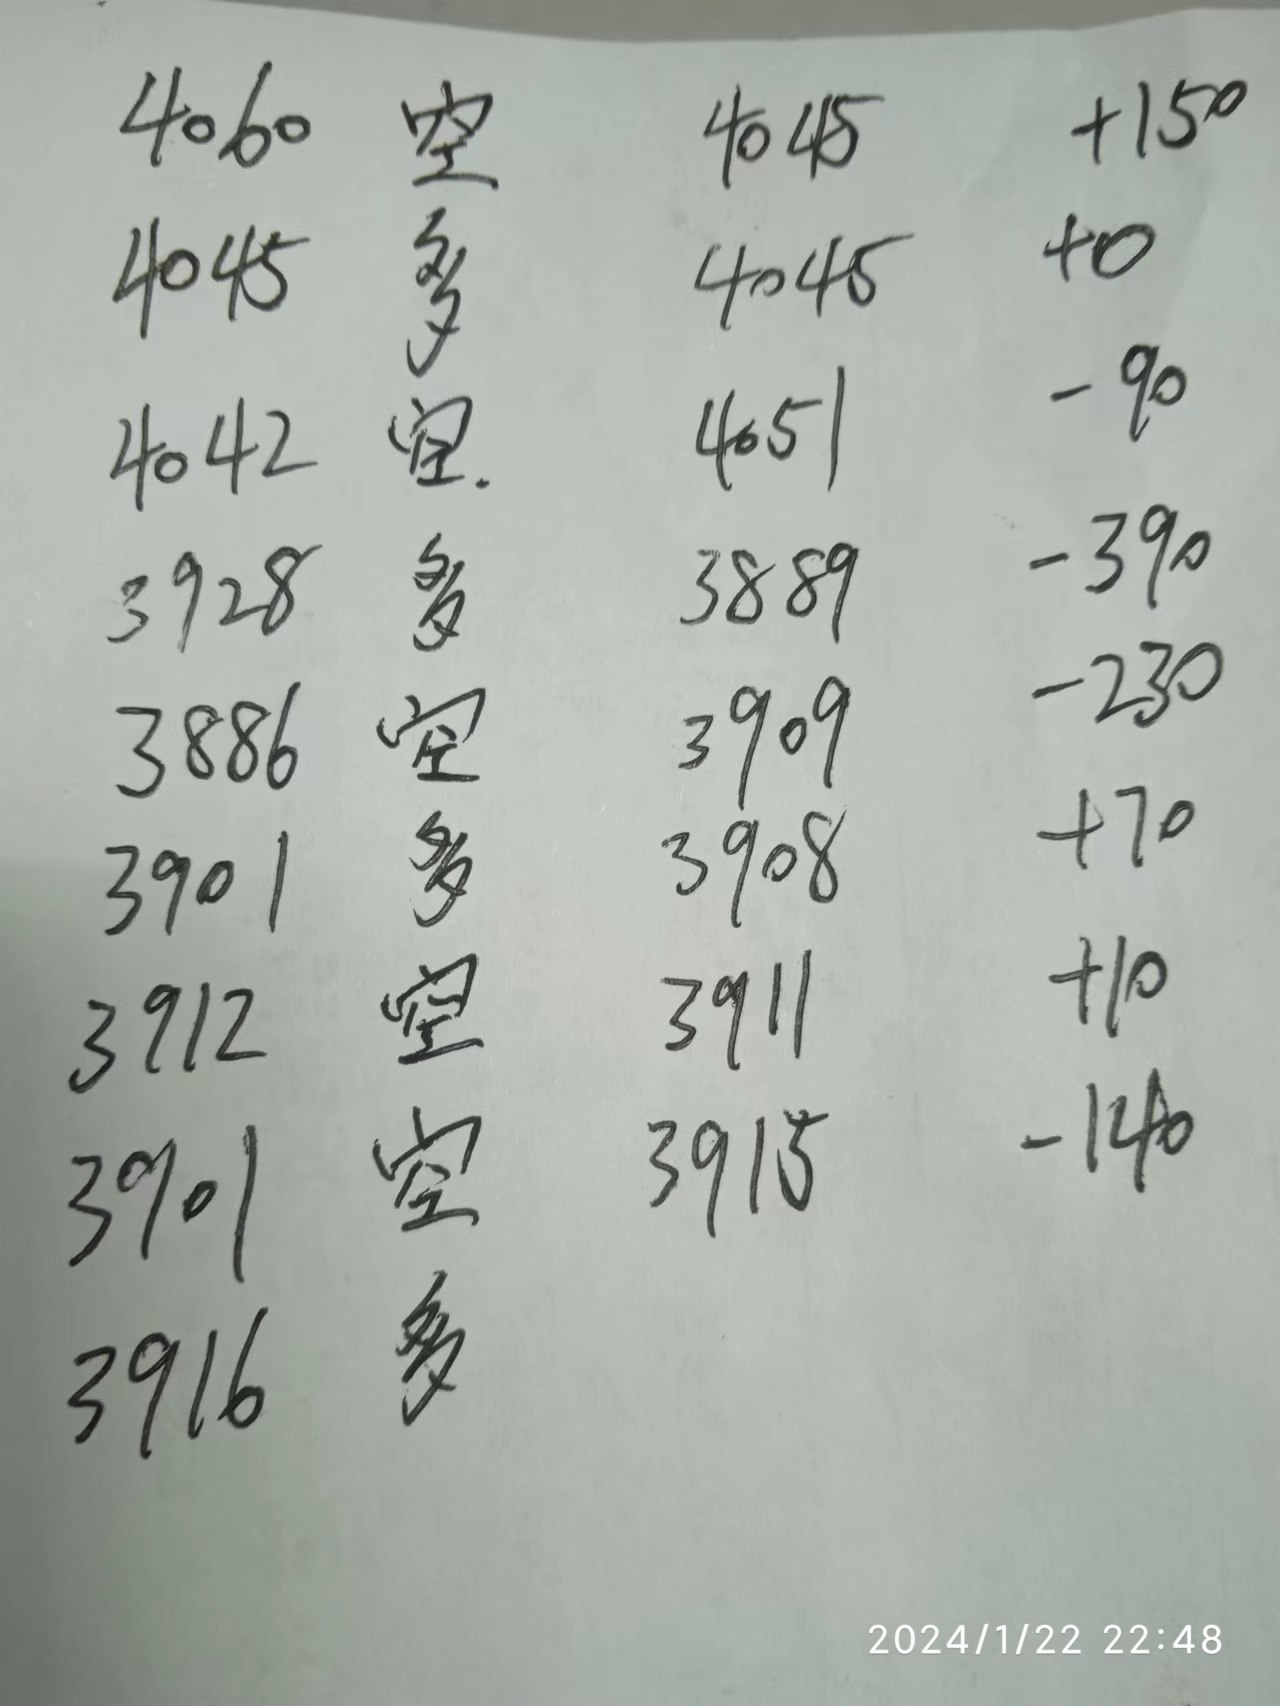 4060 空 4045 +150
4045 多 4045 +0
4042 空. 4051 -90
3928 多 3889 -390
3886 空 3909 -230
3901 多 3908 +70
3912 空 3911 +10
3901 空 3915 -140
3916 多
2024/1/22 22:48